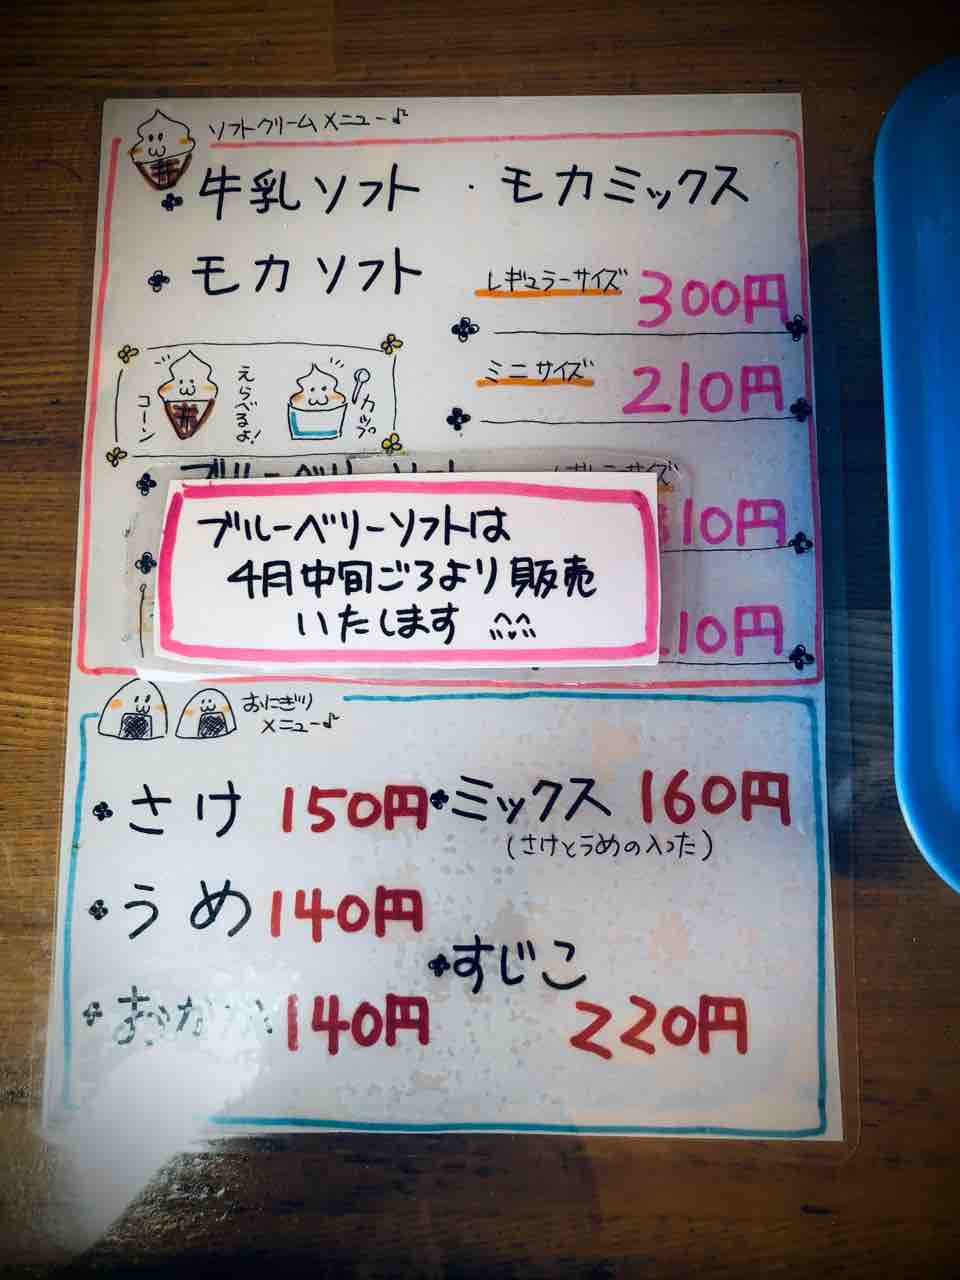 ソフトクリームメニュー♪
牛乳ソフト ・モカミックス
モカソフト
レギュラーサイズ 300円
ミニサイズ 210円
コーン
えらべるよ!
カップ
ブルーベリーソフト
レギュラーサイズ
10円
ブルーベリーソフトは
4月中旬ごろより販売
いたします
10円
おにぎり
メニュー♪
さけ 150円
ミックス 160円
(さけとうめの入った)
うめ 140円
すじこ
220円
おかか 140円